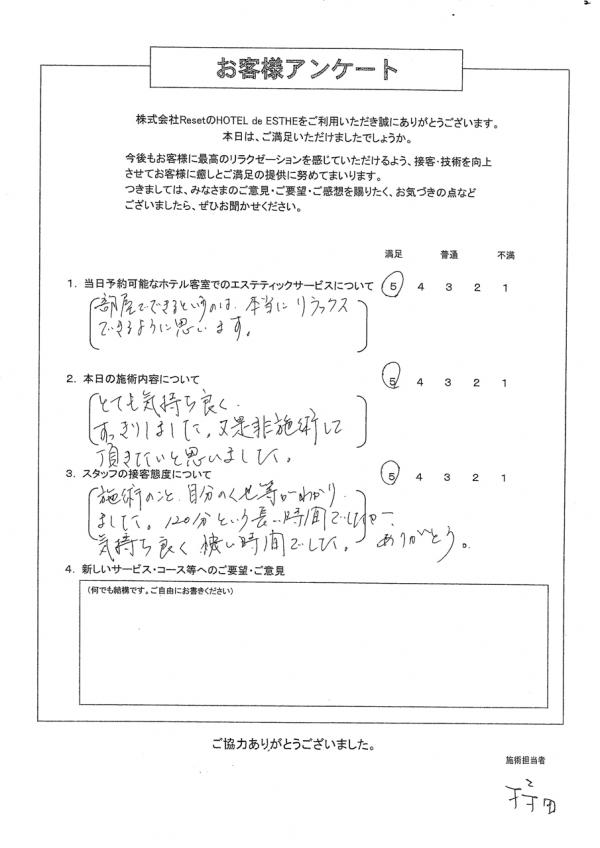 お客様アンケート
株式会社ResetのHOTEL de ESTHEをご利用いただき誠にありがとうございます。
本日は、ご満足いただけましたでしょうか。
今後もお客様に最高のリラクゼーションを感じていただけるよう、接客・技術を向上
させてお客様に癒しとご満足の提供に努めてまいります。
つきましては、みなさまのご意見・ご要望・ご感想を賜りたく、お気づきの点など
ございましたら、ぜひお聞かせください。
満足 普通 不満
1. 当日予約可能なホテル客室でのエステティックサービスについて 5 4 3 2 1
部屋でできるというのは、本当にリラックス
できるように思います。
2. 本日の施術内容について 5 4 3 2 1
とても気持ち良く、
すっきりしました。又是非施術して
頂きたいと思いました。
3. スタッフの接客態度について 5 4 3 2 1
施術のこと、自分のくせ等がわかり
ました。120分という長い時間でしたが、
気持ち良く 時間でした。 ありがとう。
4. 新しいサービス・コース等へのご要望・ご意見
(何でも結構です。ご自由にお書きください)
ご協力ありがとうございました。
施術担当者